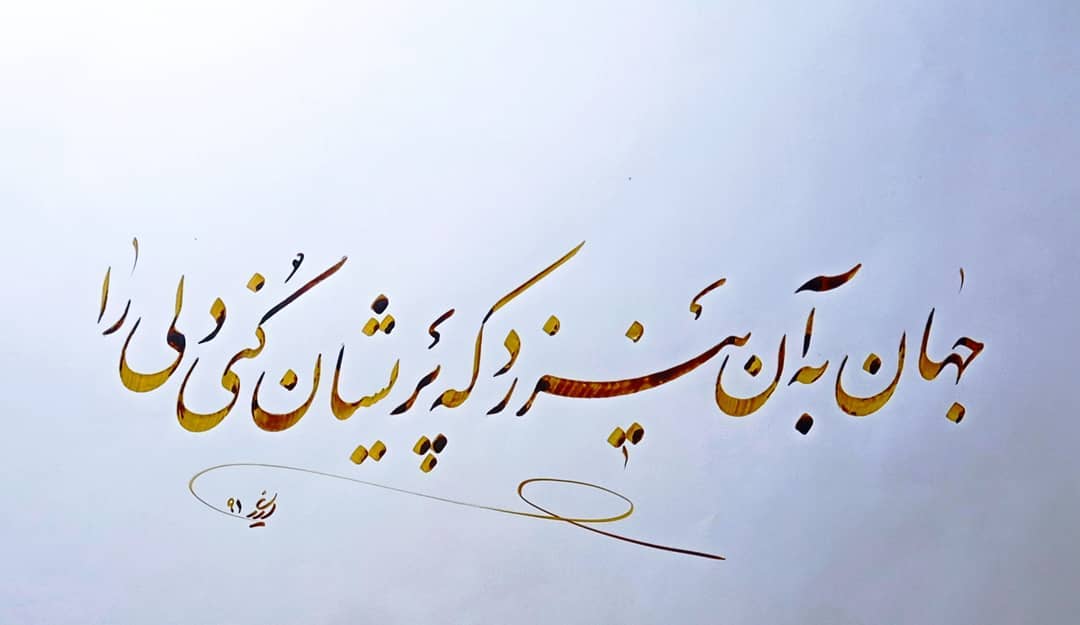 جهان به آن نیرزد که پریشان کُنی دلی را
۹۱